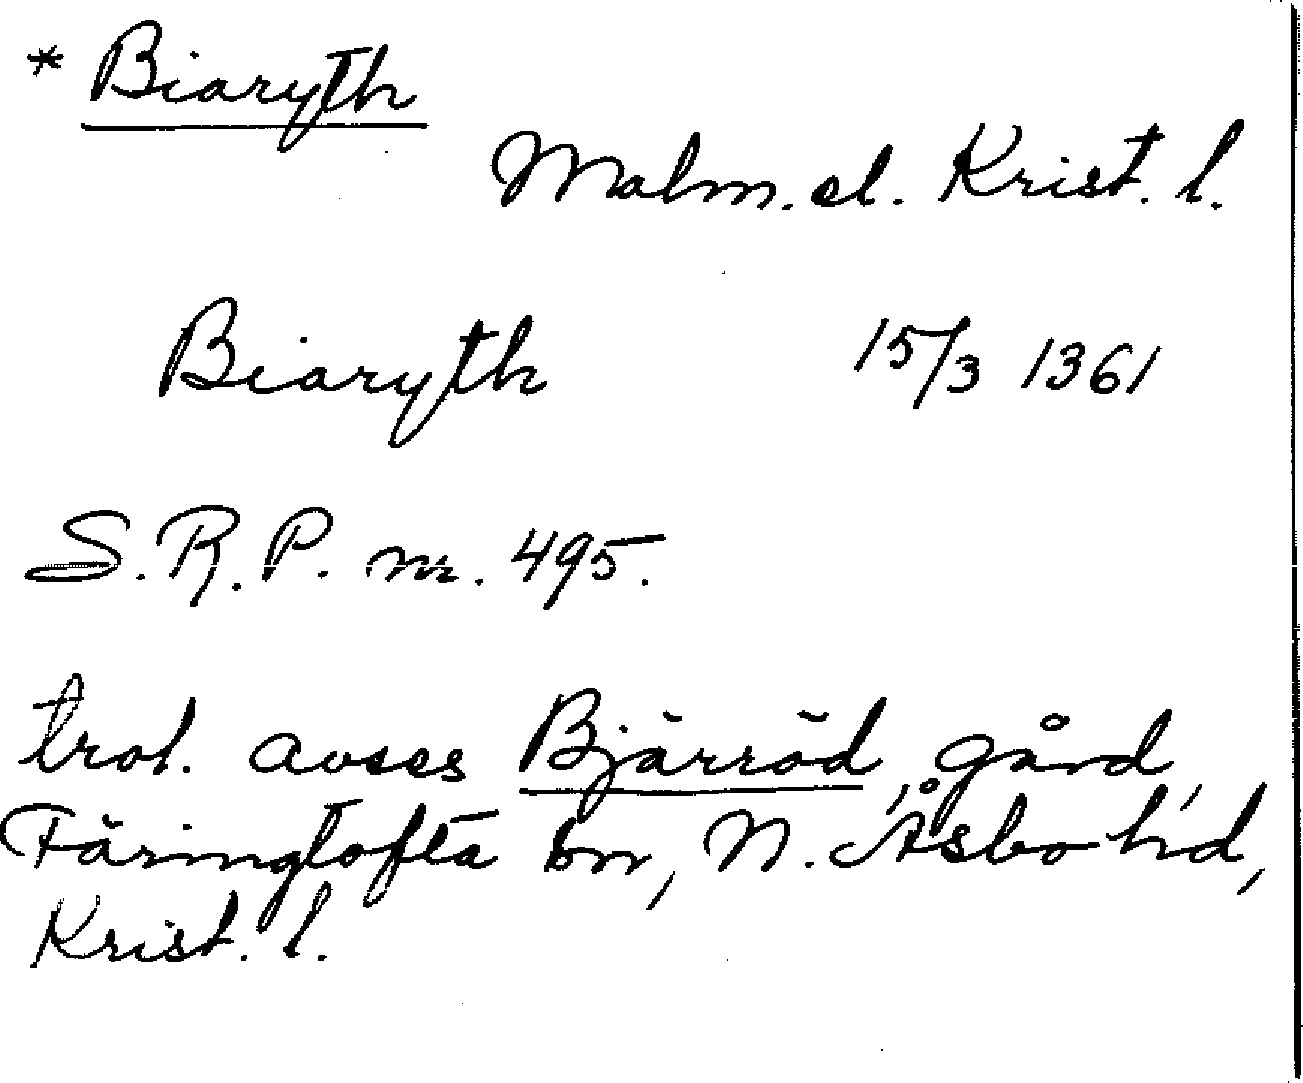 * Biaryth
Malm. el. Krist. l.
Biaryth 15/3 1361
S.R.P. nr. 495.
trol. avses Bjärröd, gård,
Färingtofta sn, N. Åsbo hd,
Krist. l.